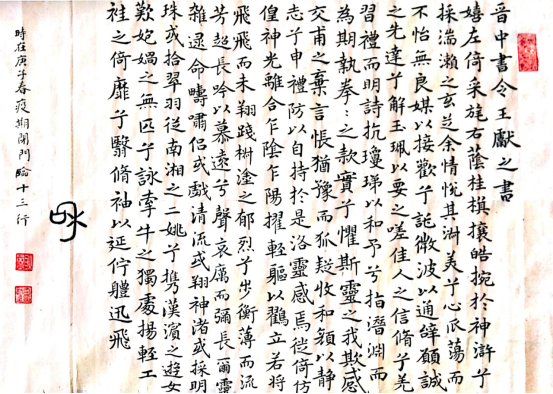 晋中書令王獻之書
嬉左倚采旄右蔭桂旗攘皓捥於神滸兮
採湍瀨之玄芝余情悅其淑美兮心振蕩而
不怡無良媒以接歡兮託微波以通辭願誠
之先達兮解玉珮以要之嗟佳人之信脩兮羌
習禮而明詩抗瓊珶以和予兮指潛淵而
為期執拳〻之款實兮懼斯靈之我欺感
交甫之棄言悵猶豫而狐疑收和顏以静
志兮申禮防以自持於是洛靈感焉徙倚仿
偟神光離合乍陰乍陽擢輕軀以鶴立若將
飛飛而未翔踐椒塗之郁烈兮步衡薄而流
芳超長吟以慕遠兮聲哀厲而彌長爾靈
雜遝命疇嘯侶或戲清流或翔神渚或採明
珠或拾翠羽從南湘之二姚兮攜漢濱之遊女
歎匏媧之無匹兮詠牽牛之獨處揚輕工
袿之倚靡兮翳脩袖以延佇體迅飛
時在庚子春疫期閉門臨十三行